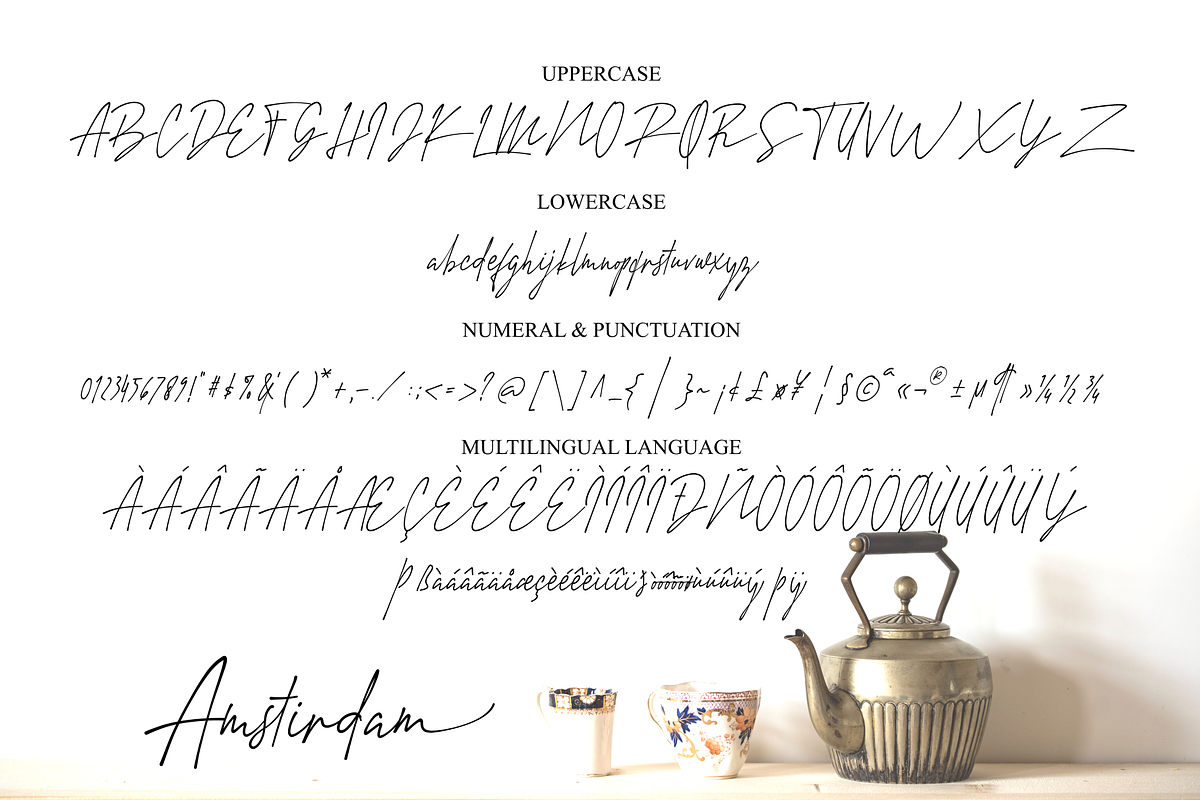 UPPERCASE
ABCDEFGHIJKLMNOPQRSTUVWXYZ
LOWERCASE
abcdefghijklmnopqrstuvwxyz
NUMERAL & PUNCTUATION
0123456789!"#$%&'()*+,-./:;<=>?@[\]^_{|}~¡¢£¤¥¦§©ª«¬®±µ¶»¼½¾
MULTILINGUAL LANGUAGE
ÀÁÂÃÄÅÆÇÈÉÊËÌÍÎÏÐÑÒÓÔÕÖØÙÚÛÜÝ
Þßàáâãäåæçèéêëìíîï
ùúûüýþÿ
Amstirdam